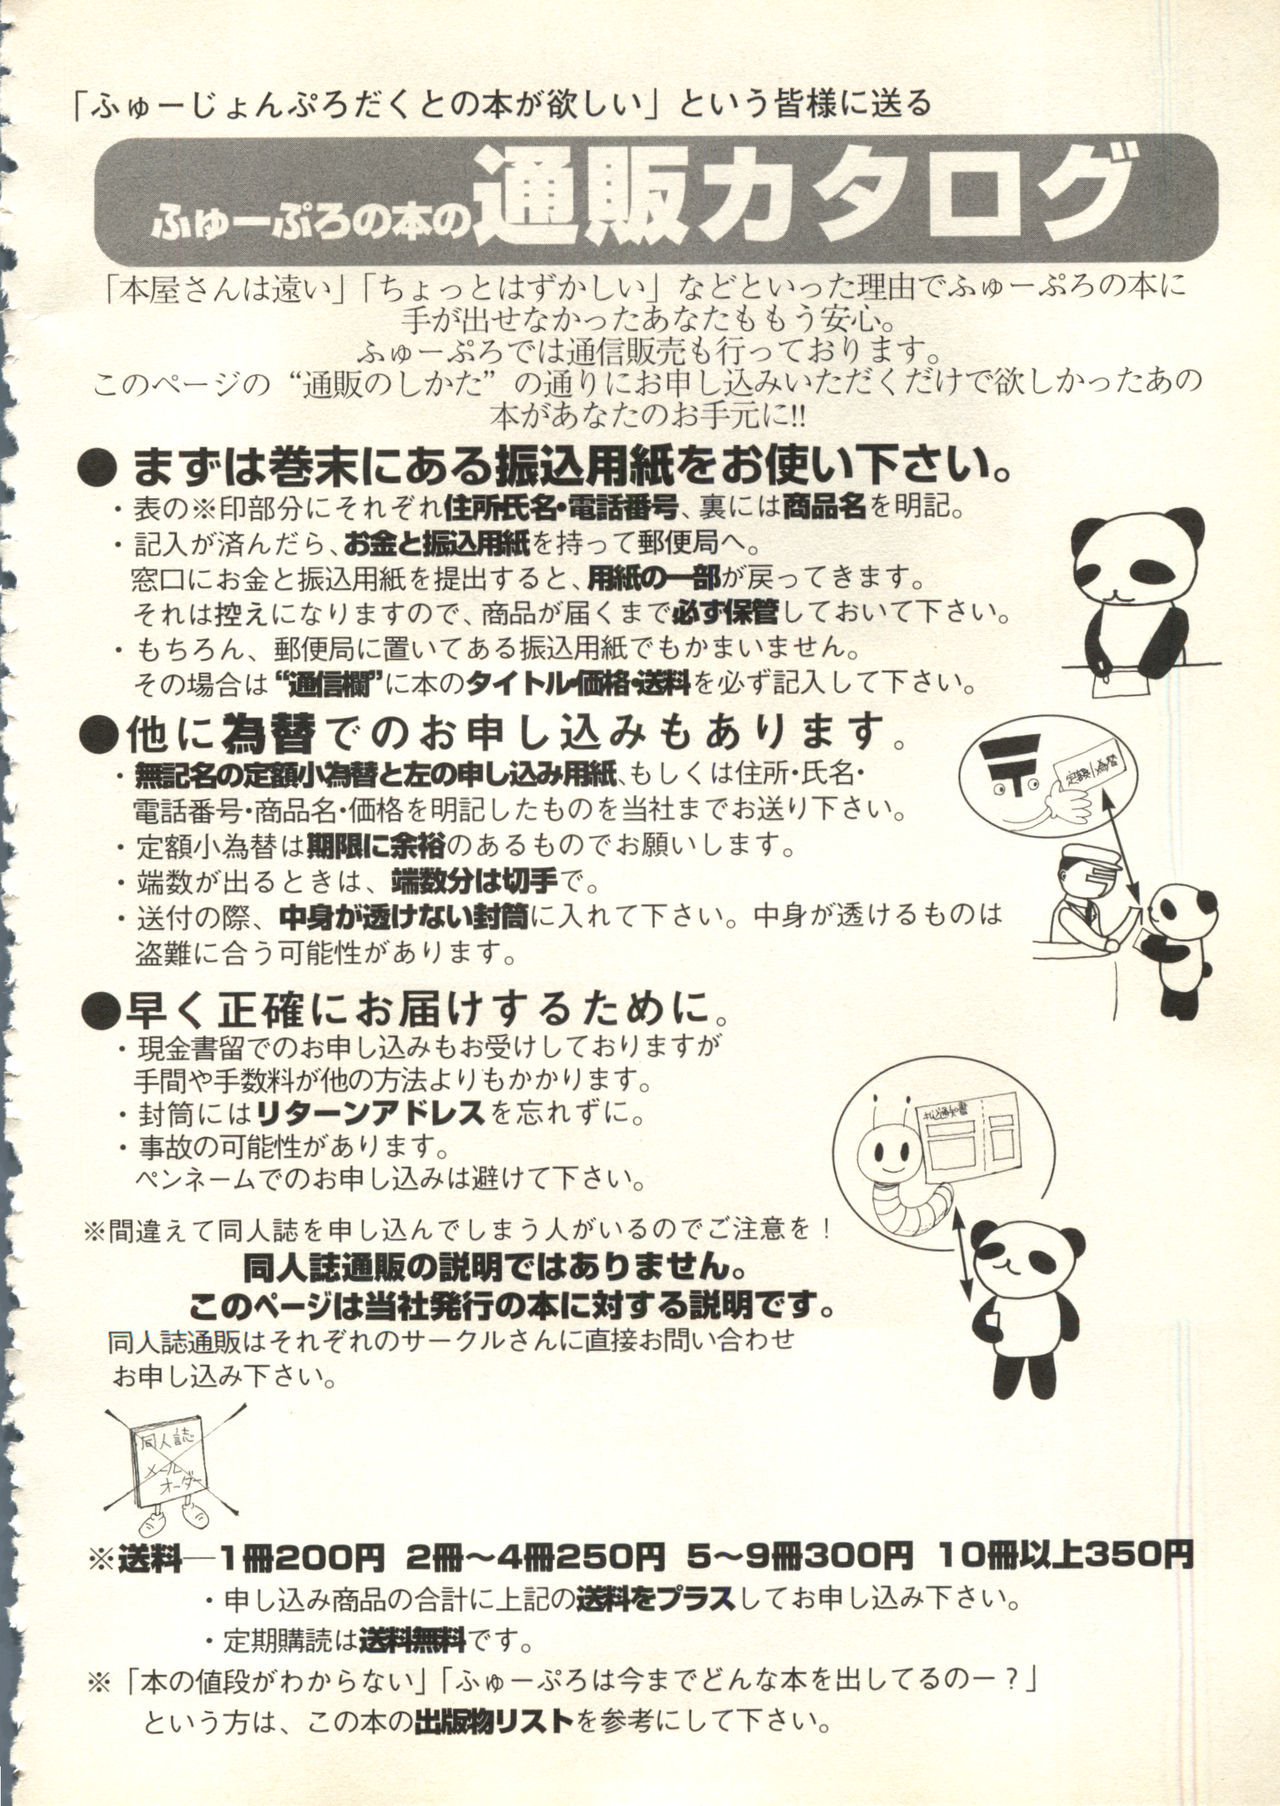 「ふゅーじょんぷろだくとの本が欲しい」という皆様に送る
ふゅーぷろの本の通販カタログ
「本屋さんは遠い」「ちょっとはずかしい」などといった理由でふゅーぷろの本に
手が出せなかったあなたももう安心。
ふゅーぷろでは通信販売も行っております。
このページの“通販のしかた”の通りにお申し込みいただくだけで欲しかったあの
本があなたのお手元に!!
●まずは巻末にある振込用紙をお使い下さい。
・表の※印部分にそれぞれ住所氏名・電話番号、裏には商品名を明記。
・記入が済んだら、お金と振込用紙を持って郵便局へ。
窓口にお金と振込用紙を提出すると、用紙の一部が戻ってきます。
それは控えになりますので、商品が届くまで必ず保管しておいて下さい。
・もちろん、郵便局に置いてある振込用紙でもかまいません。
その場合は“通信欄”に本のタイトル・価格・送料を必ず記入して下さい。
●他に為替でのお申し込みもあります。
・無記名の定額小為替と左の申し込み用紙、もしくは住所・氏名・
電話番号・商品名・価格を明記したものを当社までお送り下さい。
・定額小為替は期限に余裕のあるものでお願いします。
・端数が出るときは、端数分は切手で。
・送付の際、中身が透けない封筒に入れて下さい。中身が透けるものは
盗難に合う可能性があります。
定額小為替
●早く正確にお届けするために。
・現金書留でのお申し込みもお受けしておりますが
手間や手数料が他の方法よりもかかります。
・封筒にはリターンアドレスを忘れずに。
・事故の可能性があります。
ペンネームでのお申し込みは避けて下さい。
払込通知書
※間違えて同人誌を申し込んでしまう人がいるのでご注意を！
同人誌通販の説明ではありません。
このページは当社発行の本に対する説明です。
同人誌通販はそれぞれのサークルさんに直接お問い合わせ
お申し込み下さい。
同人誌
メール
オーダー
※送料―1冊200円 2冊～4冊250円 5～9冊300円 10冊以上350円
・申し込み商品の合計に上記の送料をプラスしてお申し込み下さい。
・定期購読は送料無料です。
※「本の値段がわからない」「ふゅーぷろは今までどんな本を出してるのー？」
という方は、この本の出版物リストを参考にして下さい。